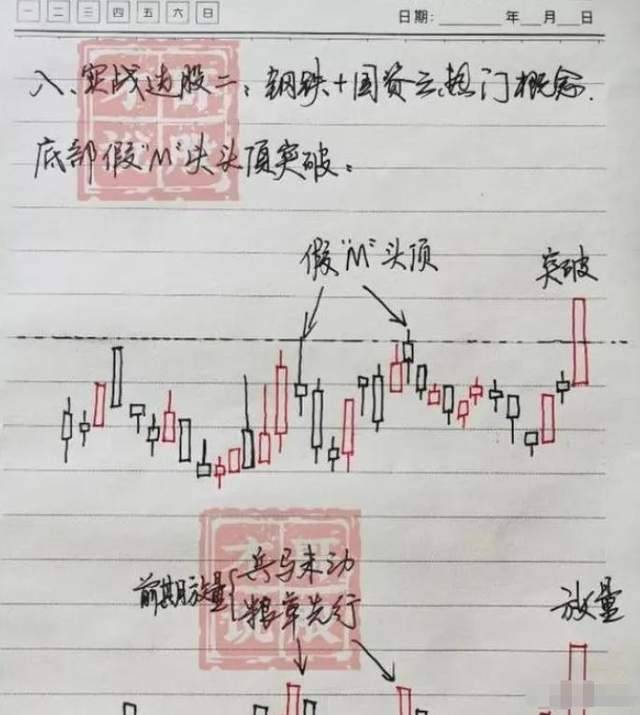 一 二 三 四 五 六 日
日期: 年 月 日
八、实战选股二：钢铁+国资云热门概念.
底部假"M"头头顶突破。
假"M"头顶
突破
兵马未动
前期放量
粮草先行
放量